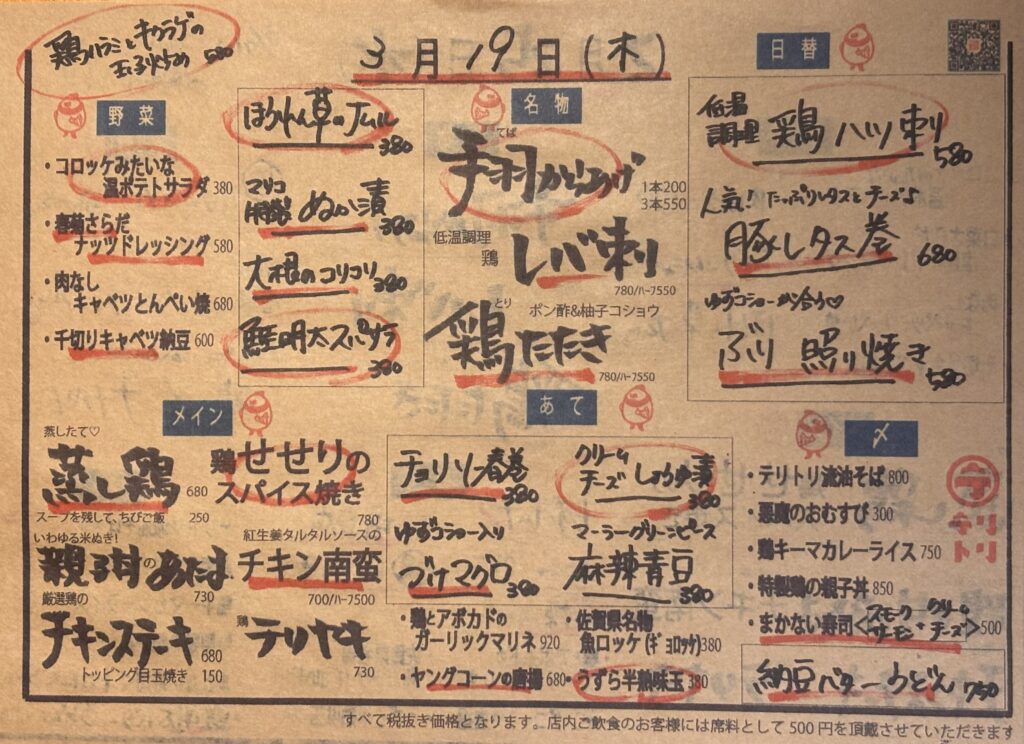 鶏ハラミとキクラゲの
玉子炒め 580
3月19日(木)
野菜
・コロッケみたいな
温ポテトサラダ 380
・春菊さらだ
ナッツドレッシング 580
・肉なし
キャベツとんぺい焼 680
・千切りキャベツ納豆 600
ほうれん草のナムル
380
マリコ
特製 ぬか漬
380
大根のコリコリ
380
鮭明太スパサラ
380
名物
てば
手羽からあげ
1本200
3本550
低温調理
鶏 レバ刺
780/ハーフ550
ポン酢&柚子コショウ
とり
鶏たたき
780/ハーフ550
日替
低温
調理 鶏ハツ刺
580
人気!たっぷりレタスとチーズ♪
豚レタス巻
680
ゆずコショーが合う♡
ぶり 照り焼き
580
メイン
蒸したて♡
蒸し鶏 680
スープを残して、ちびご飯 250
いわゆる米ぬき!
親子丼のあたま
730
厳選鶏の
チキンステーキ 680
トッピング目玉焼き 150
鶏 せせりの
スパイス焼き
780
紅生姜タルタルソースの
チキン南蛮
700/ハーフ500
鶏 テリヤキ
730
あて
チョリソー春巻
380
クリーム
チーズしょうゆ漬
380
ゆずコショー入り
づけマグロ
380
マーラーグリーンピース
麻辣青豆
380
・鶏とアボカドの
ガーリックマリネ 920
・ヤングコーンの唐揚 680
・佐賀県名物
魚ロッケ(ギョロッケ)380
・うずら半熟味玉 380
〆
・テリトリ流油そば 800
・悪魔のおむすび 300
・鶏キーマカレーライス 750
・特製鶏の親子丼 850
・まかない寿司<スモークサーモン・クリームチーズ>500
納豆バターうどん 750
テリトリ
すべて税抜き価格となります。店内ご飲食のお客様には席料として500円を頂戴させていただきます